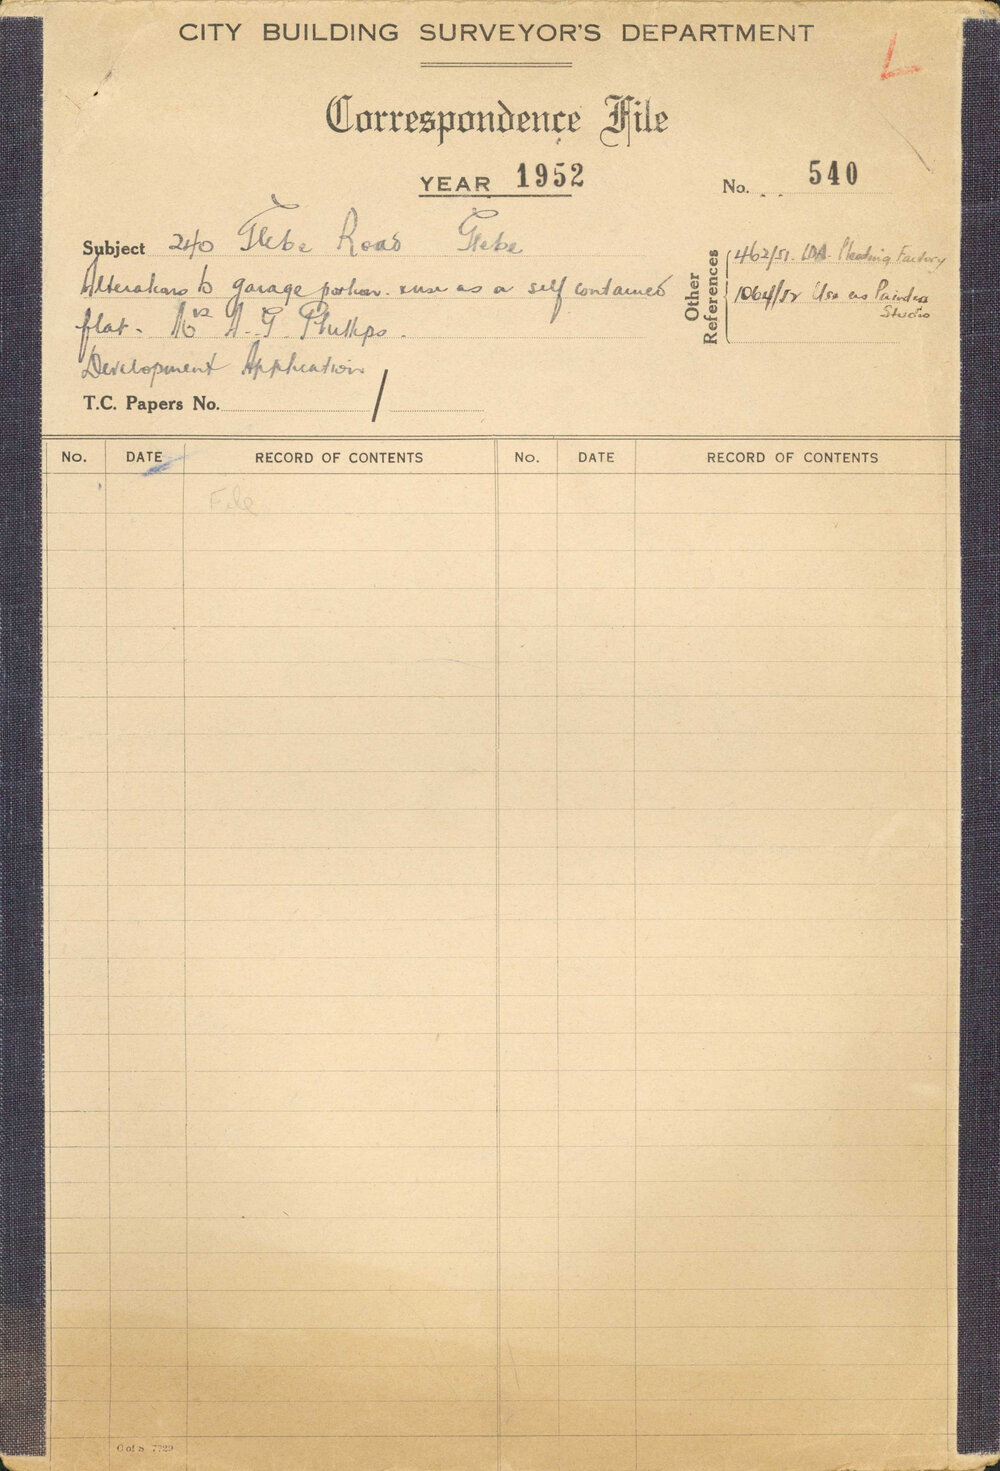 CITY BUILDING SURVEYOR'S DEPARTMENT
L
Correspondence File
YEAR 1952
No. . . 540
Subject 240 Glebe Road Glebe
Alterations to garage portion. & use as a self contained
flat - Mrs A. G. Phillips.
Development Application
T.C. Papers No. /
Other References
462/51. Pleating Factory
1064/52 Use as Painters
Studio
No. DATE RECORD OF CONTENTS No. DATE RECORD OF CONTENTS
File
C of S 7729